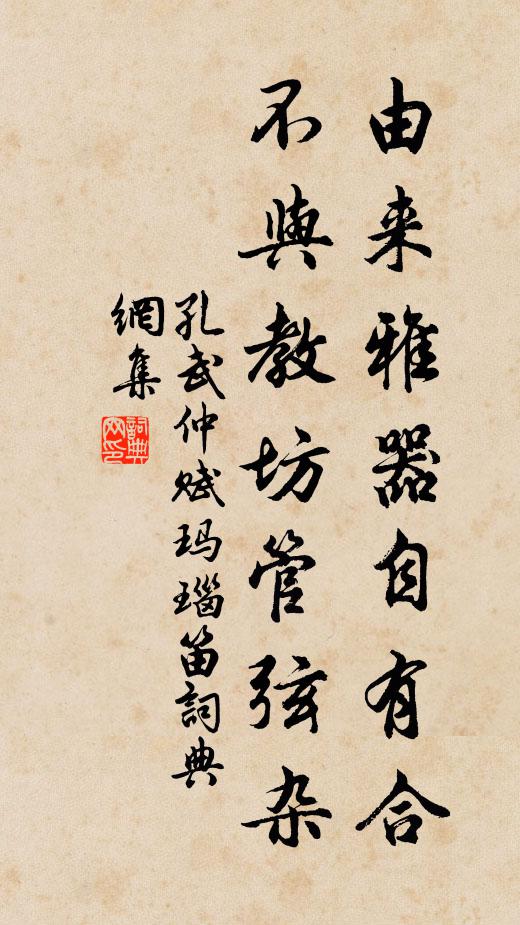 由来雅器自有合
不與教坊管弦杂
孔武仲赋玛瑙笛詞典
網集
詞典
网印